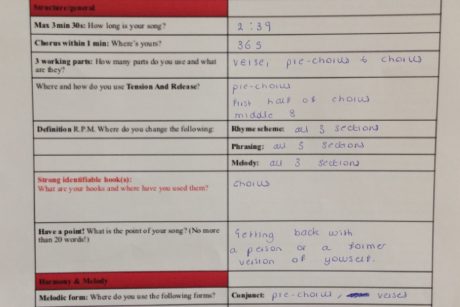 Structure/general
Max 3 min 30s: How long is your song?
2:39
Chorus within 1 min: Where's yours?
36s
3 working parts: How many parts do you use and what
are they?
verse, pre-chorus & chorus
Where and how do you use Tension And Release?
pre-chorus
First half of chorus
middle 8
Definition R.P.M. Where do you change the following:
Rhyme scheme: all 3 sections
Phrasing: all 3 sections
Melody: all 3 sections
Strong identifiable hook(s):
What are your hooks and where have you used them?
chorus
Have a point! What is the point of your song? (No more
than 20 words!)
Getting back with
a person or a former
version of yourself.
Harmony & Melody
Melodic form: Where do you use the following forms?
Conjunct: pre-chorus, verses